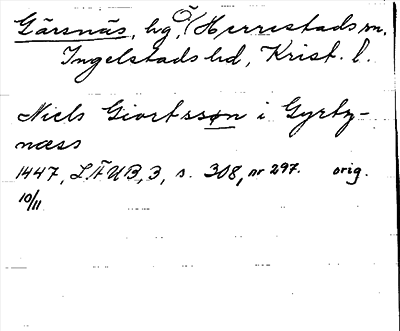 Gärsnäs, hg, Ö (Herrestads sn.
Ingelstads hd, Krist. l.
Niels Giortsson i Gyrtz-
næss
1447, LÄUB, 3, s. 308, nr 297. orig.
10/11